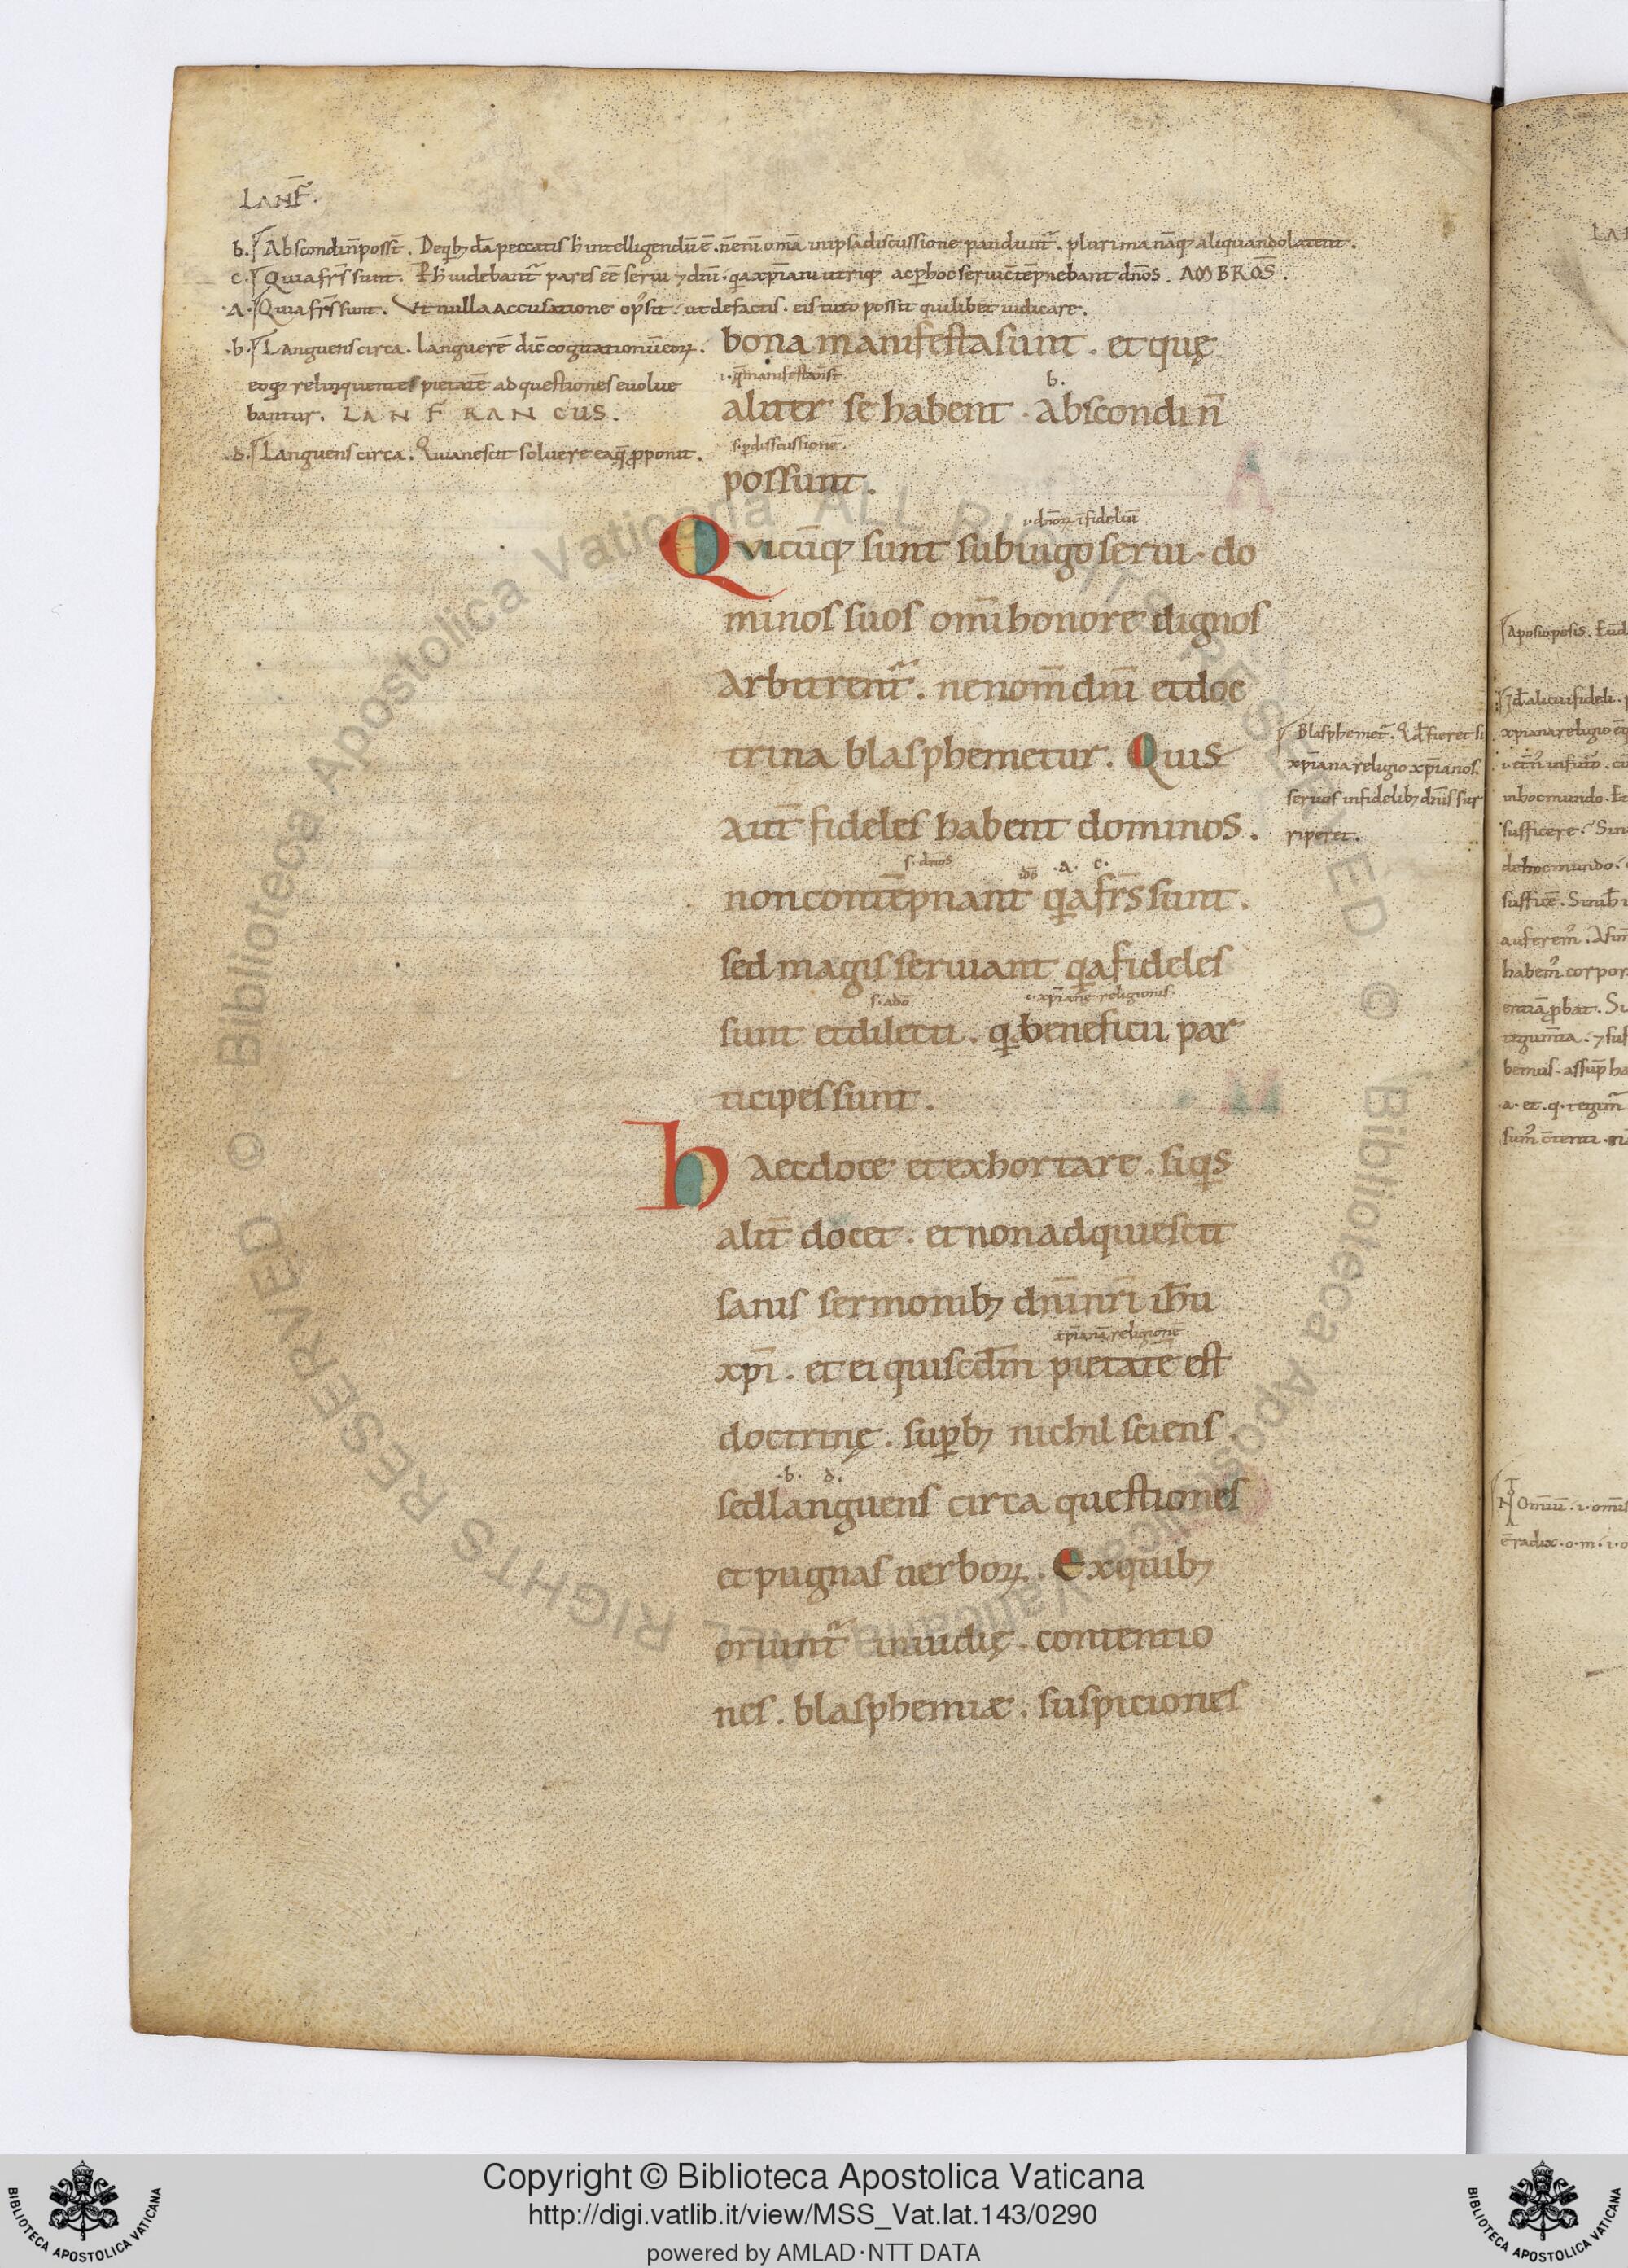 LANF̄.
b. Abscondi n̄ poss̄t. De quib; dā peccatis h̓ intelligendū ē. n̄ eni om̄a in ipsa discussione pandunt̃. plurima nāq; aliquando latent.
c. Quia fr̄s sunt. P h̓ uidebant̃ pares eē serui ⁊ dn̄i. qa xp̄iani utriq; ac p hoc serui c̄tēpnebant dn̄os. AMBROS̄.
.A. Quia fr̄s sunt. Vt nulla accusatione op̓ sit. ut de factis. eis tuto possit quilibet iudicare.
.b. Languens circa. languerē dic̄ cogitationū eoꝝ.
eoq; relinquentes pietatē ad questiones euolue
bantur. LANFRANCUS.
.d. Languens circa. Qui a nescit soluere ea q̄ pponit.
bona manifesta sunt. et quę
.i. q̄ manifesta n̄ st̄
b.
aliter se habent. abscondi n̄
s. p discussione.
possunt.
.i. dn̄oꝝ īfideliū
Quicūq; sunt sub iugo serui. do
minos suos om̄i honore dignos
arbitrent̃. ne nom̄ dn̄i et doc
trina blasphemetur. Qui s
aut̄ fideles habent dominos.
s. dn̄os
ido
.a. c.
non contēpnant qa fr̄s sunt.
sed magis seruiant qa fideles
s. a dō
.i. xp̄ianę religionis.
sunt et dilecti. qi beneficii par
ticipes sunt.
Haec doce et exhortare. si qs
alit̄ docet. et non adquiescit
sanis sermonib; dn̄i nr̄i ih̄u
xp̄ianā religionē
xp̄i. et ei quę scd̄m pietatē est
doctrinę. supb; nichil sciens.
.b. d.
sed languens circa questiones
et pugnas uerboꝝ. Ex quib;
oriunt̃ inuidię. contentio
nes. blasphemiæ. suspiciones
Blasphemet̃. Qd̄ fieret si
xp̄iana religio xp̄ianos.
seruos infidelib; dn̄is sur
riperet.
Copyright © Biblioteca Apostolica Vaticana
http://digi.vatlib.it/view/MSS_Vat.lat.143/0290
powered by AMLAD·NTT DATA
BIBLIOTECA APOSTOLICA VATICANA
BIBLIOTECA APOSTOLICA VATICANA
© Biblioteca Apostolica Vaticana ALL RIGHTS RESERVED © Biblioteca Apostolica Vaticana ALL RIGHTS RESERVED